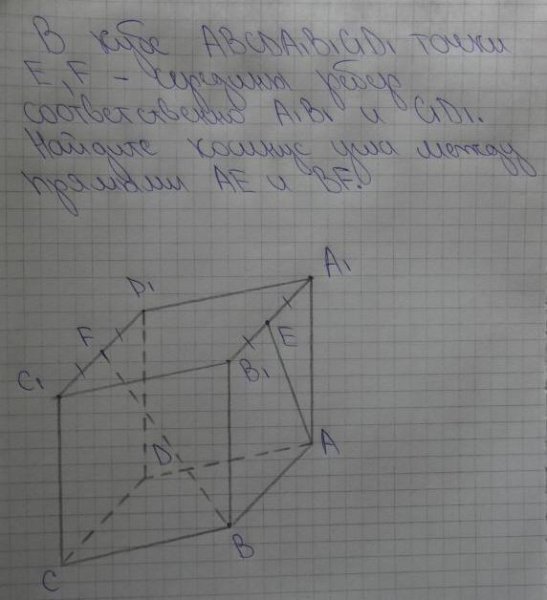 В кубе ABCDA₁B₁C₁D₁ точки
E, F – середины рёбер
соответственно A₁B₁ и C₁D₁.
Найдите косинус угла между
прямыми AE и BF.
A₁
D₁
F
E
C₁
B₁
D
A
B
C